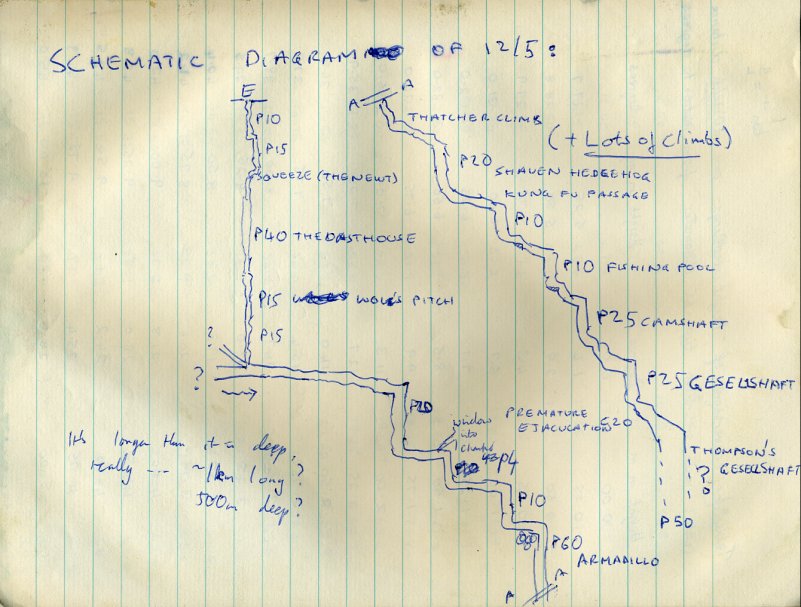 SCHEMATIC DIAGRAM OF 12/5:
E
P10
P15
SQUEEZE (THE NEWT)
P40 THE OASTHOUSE
P15 WOW'S PITCH
P15
?
?
P20
window
into
P4
P10
P60
ARMADILLO
A A
A A
THATCHER CLIMB
(+ Lots of Climbs)
P20 SHAVEN HEDGEHOG
KUNG FU PASSAGE
P10
P10 FISHING POOL
P25 CAMSHAFT
P25 GESELLSHAFT
PREMATURE
EJACULATION
THOMPSON'S
GESELLSHAFT
?
P50
It's longer than it is deep,
really ... ~1km long?
500m deep?